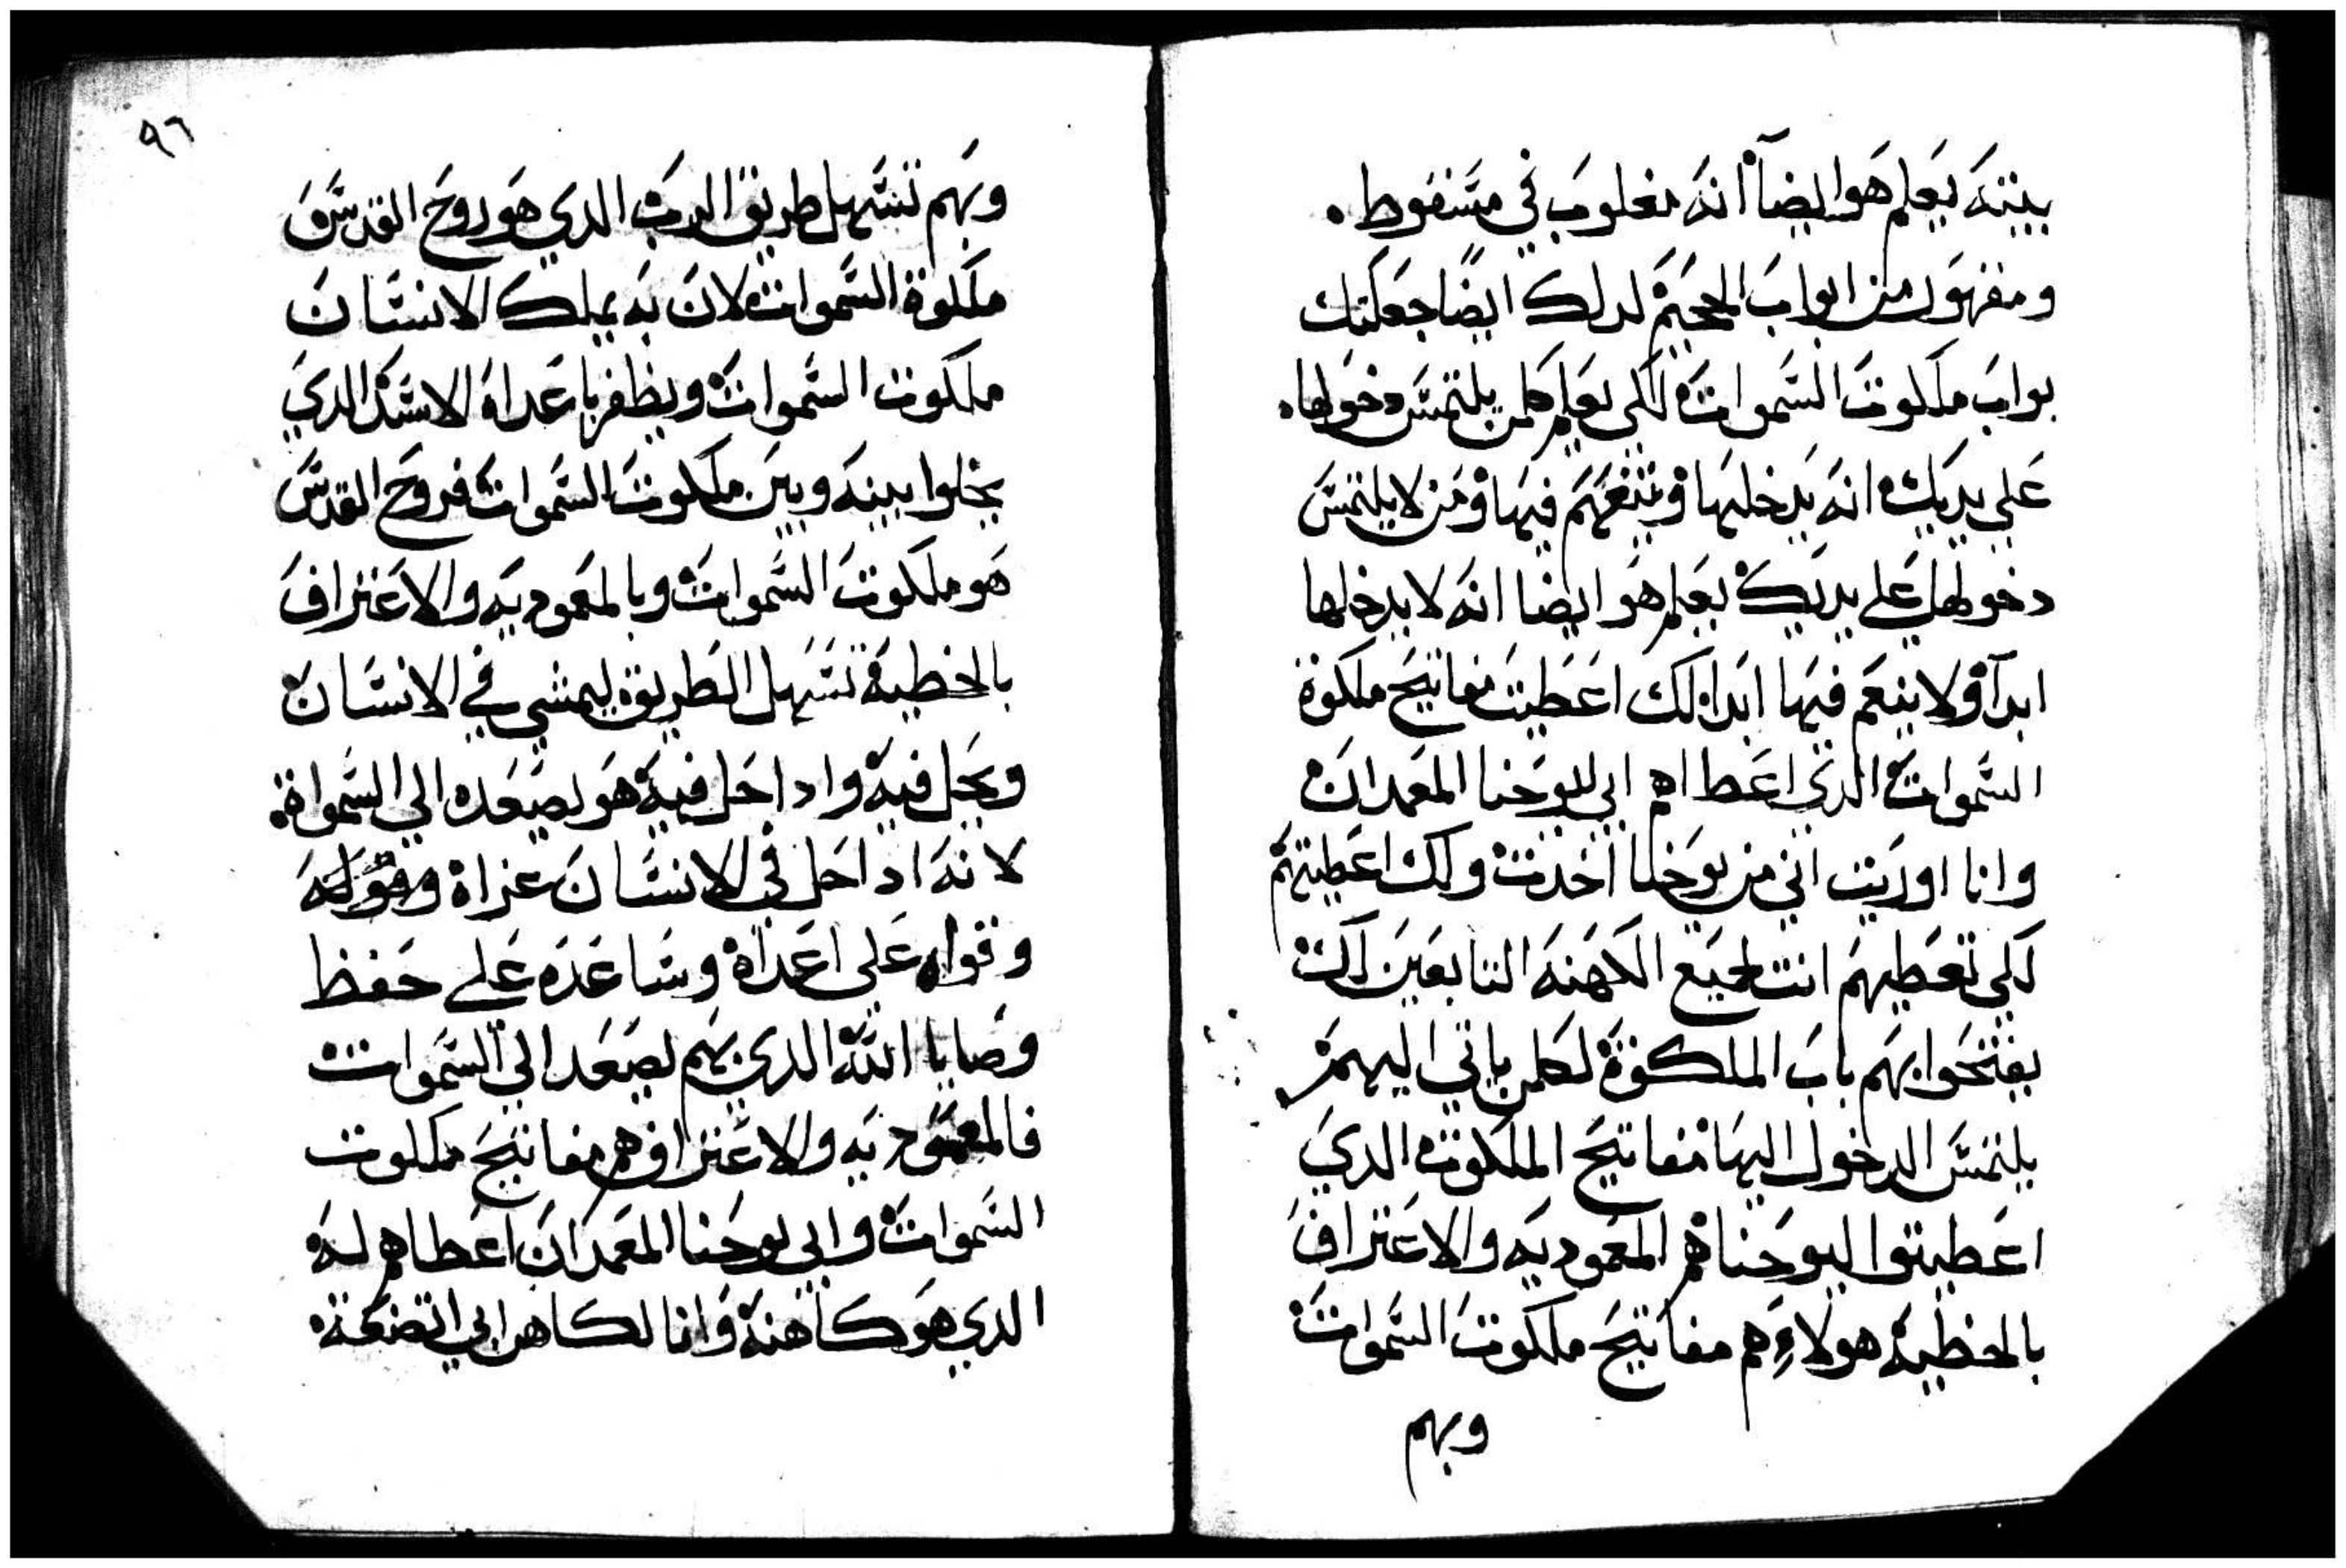 بينه يعلم هو ايضاً انه مغلوب في مسقوط.
ومقهور من ابواب الجحيم لدلك ايضًا جعلتك
بواب ملكوت السموات لكي يعلم كلمن يلتمس دخولها.
علي يديك انه يدخليها ويتنعم فيها ومن لا يلتمس
دخولها علي يديك يعلم هو ايضا انه لا يدخلها
ابدآ ولا ينعم فيها ابدا لك اعطيت مفاتيح ملكوة
السموات الدي اعطاهم ابي ليوحنا المعمدان
وانا اوريت اني من يوحنا اخدت ولك اعطيتهم
لكي تعطيهم انت لجميع الكهنه التابعين لك
يفتحوا بهم باب الملكوة لكلمن ياتي اليهم
يلتمس الدخول اليها مفاتيح الملكوت الدي
اعطيتوا ليوحنا هم المعموديه والاعتراف
بالخطيه هولاء هم مفاتيح ملكوت السموات
وبهم
٩٦
وبهم تسهل طريق الرب الدي هو روح القدس
ملكوة السموات لان به يملك الانسان
ملكوت السموات ويظفر باعداه الاسد الدي
يخلوا بينه وبين ملكوت السموات فروح القدس
هو ملكوت السموات وبالمعموديه والاعتراف
بالخطية تسهل الطريق ليمشي في الانسان
ويحل فيه وادا حل فيه هو يصعده الي السمواة.
لانه ادا حل في الانسان عزاه
وقواه علي اعداه وساعده علي حفظ
وصايا الله الدي بهم يصعد الي السموات
فالمعموديه والاعتراف هم مفاتيح ملكوت
السموات وابي يوحنا المعمدان اعطاهم له
الدي هو كاهنه وانا لكاهن ابي اتضعة.